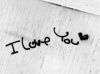 I Love You♥